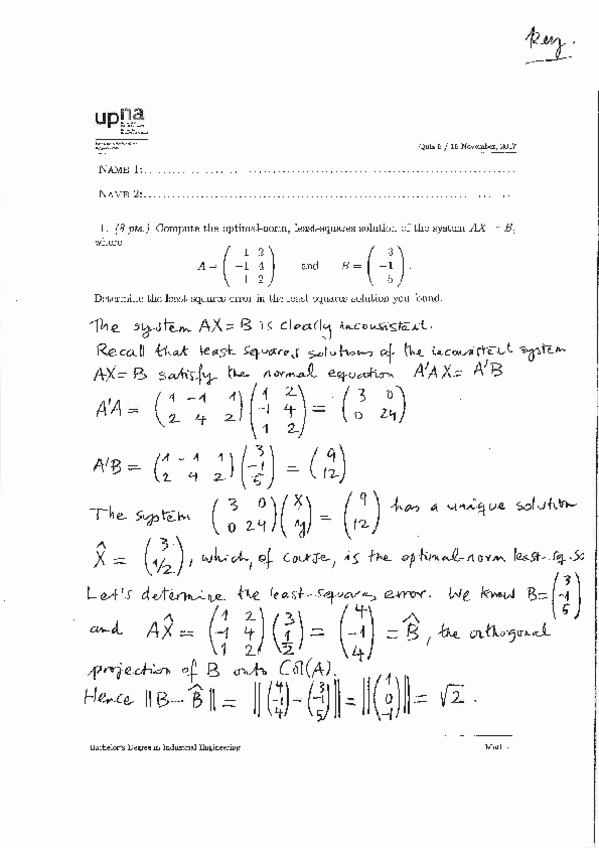 Key.
upna
Quiz 5 / 15 November, 2017
NAME 1:
NAME 2:
1. (8 pts.) Compute the optimal-norm, least-squares solution of the system AX = B,
where
A = ( 1 2 ; -1 4 ; 1 2 ) and B = ( 3 ; -1 ; 5 ) .
Determine the least squares error in the least squares solution you found.
The system AX = B is clearly inconsistent.
Recall that least squares solutions of the inconsistent system
AX = B satisfy the normal equation A'AX = A'B
A'A = ( 1 -1 1 ; 2 4 2 ) ( 1 2 ; -1 4 ; 1 2 ) = ( 3 0 ; 0 24 )
A'B = ( 1 -1 1 ; 2 4 2 ) ( 3 ; -1 ; 5 ) = ( 9 ; 12 )
The system ( 3 0 ; 0 24 ) ( x ; y ) = ( 9 ; 12 ) has a unique solution
X̂ = ( 3 ; 1/2 ), which, of course, is the optimal-norm least-sq. so
Let's determine the least-squares error. We know B = ( 3 ; -1 ; 5 )
and AX̂ = ( 1 2 ; -1 4 ; 1 2 ) ( 3 ; 1/2 ) = ( 4 ; -1 ; 4 ) = B̂, the orthogonal
projection of B onto Col(A).
Hence ‖B - B̂‖ = ‖( 4 ; -1 ; 4 ) - ( 3 ; -1 ; 5 )‖ = ‖( 1 ; 0 ; -1 )‖ = √2 .
Bachelor's Degree in Industrial Engineering